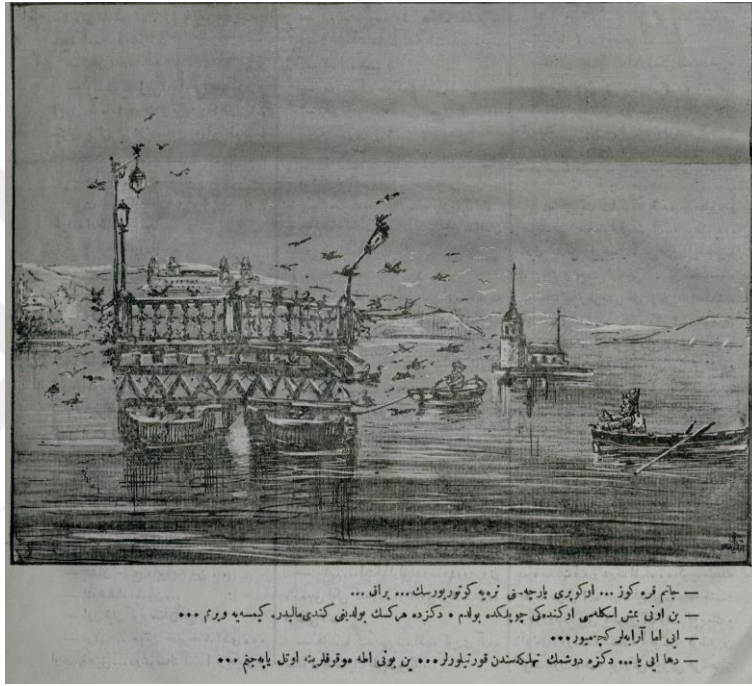 — جانم قره كوز ... او كوپری پارچه‌سنی نره‌یه كوتوریورسك ... براق ...
— بن اونی یمش اسكله‌سی اوكنده‌كی چوپلكده بولدم ، دكزده هركسك بولدیغی كندی مالیدر. كیمسه‌یه ویرمم ...
— ایی اما آرابه‌لر كچه‌میور ...
— دها ایی یا ... دكزه دوشمك تهلكه‌سندن قورتیلورلر ... بن بونی اطه موقوفلرینه اوتل یاپه‌جغم ...